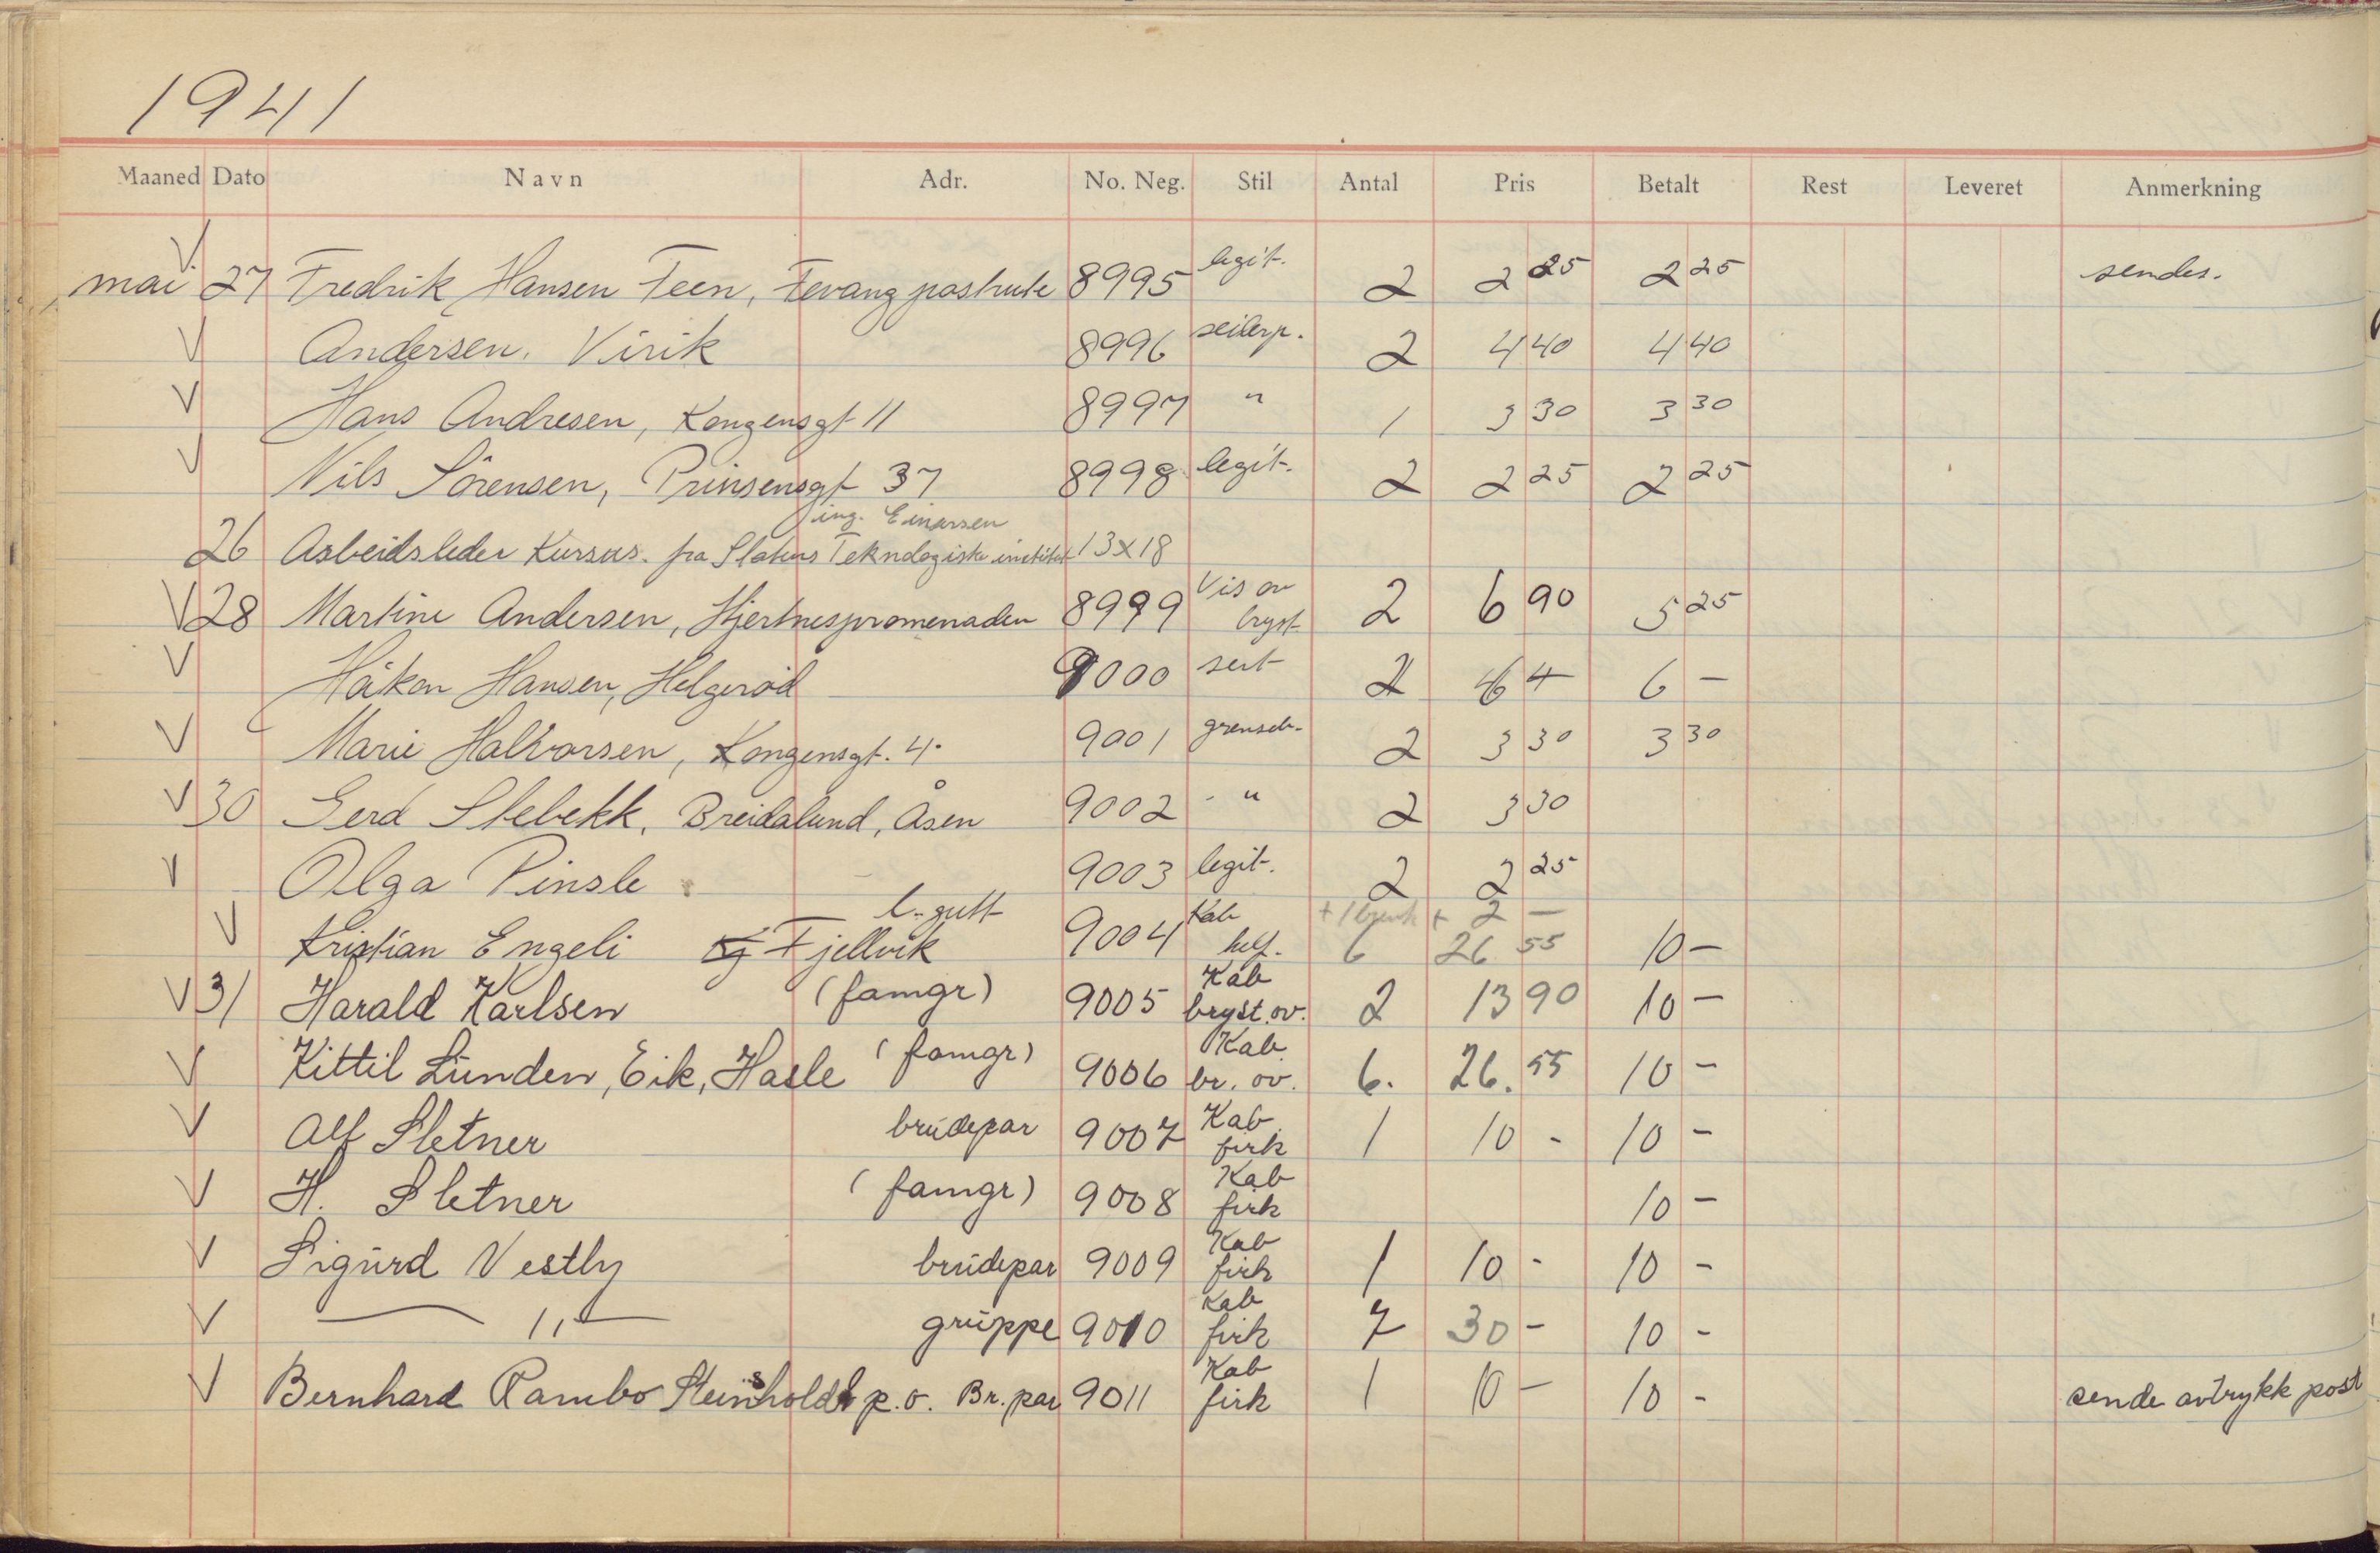 1941
Maaned Dato Navn Adr. No. Neg. Stil Antal Pris Betalt Rest Leveret Anmerkning
V mai 27 Fredrik Hansen Feen, Fevang postrute 8995 legit. 2 2 25 2 25 sendes.
V Andersen, Virik 8996 seilerp. 2 4 40 4 40
V Hans Andresen, Kongensgt 11 8997 " 1 3 30 3 30
V Nils Sörensen, Prinsensgt 37 8998 legit. 2 2 25 2 25
ing. Einarsen
26 Arbeidsleder Kursus. fra Statens Teknologiske institut 13x18
V 28 Martine Andersen, Hjertnespromenaden 8999 Vis ov bryst 2 6 90 5 25
V Håkon Hansen, Helgerød 9000 sert 2 6 6 –
V Marie Halvorsen, Kongensgt. 4. 9001 grenseb. 2 3 30 3 30
V 30 Gerd Stebekk, Breidalund, Åsen 9002 - " 2 3 30
V Olga Pinsle 9003 legit. 2 2 25
l. gutt + 1 + 2 –
V Kristian Engeli Fjellvik 9004 Kab hel f. 6 26 55 10 –
V 31 Harald Karlsen (famgr) 9005 Kab bryst. ov. 2 13 90 10 –
V Kittil Lunden, Eik, Hasle (famgr) 9006 Kab br. ov. 6. 26. 55 10 –
V Alf Sletner brudepar 9007 Kab firk 1 10 - 10 –
V H. Sletner (famgr) 9008 Kab firk 10 –
V Sigurd Vestly brudepar 9009 Kab firk 1 10 - 10 -
V — " — gruppe 9010 Kab firk 7 30 – 10 -
V Bernhard Rambo Steinsholdt p.o. Br. par 9011 Kab firk 1 10 – 10 - sende avtrykk post